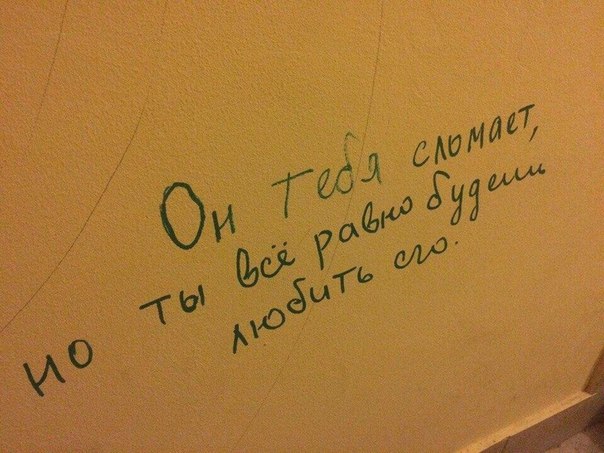 Он тебя сломает,
но ты всё равно будешь
любить его.